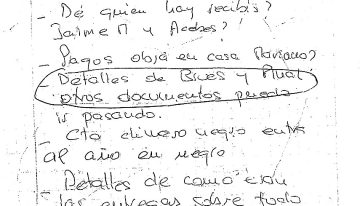 - De quien hay recibís?
Jaime M y Acebes?
- Pagos obra en casa Mariano?
- Detalles de Brues y Mual
otros documentos pueda
ir pasando.
- Cto dinero negro entra
al año en negro
- Detalles de como eran
las entregas sobre todo